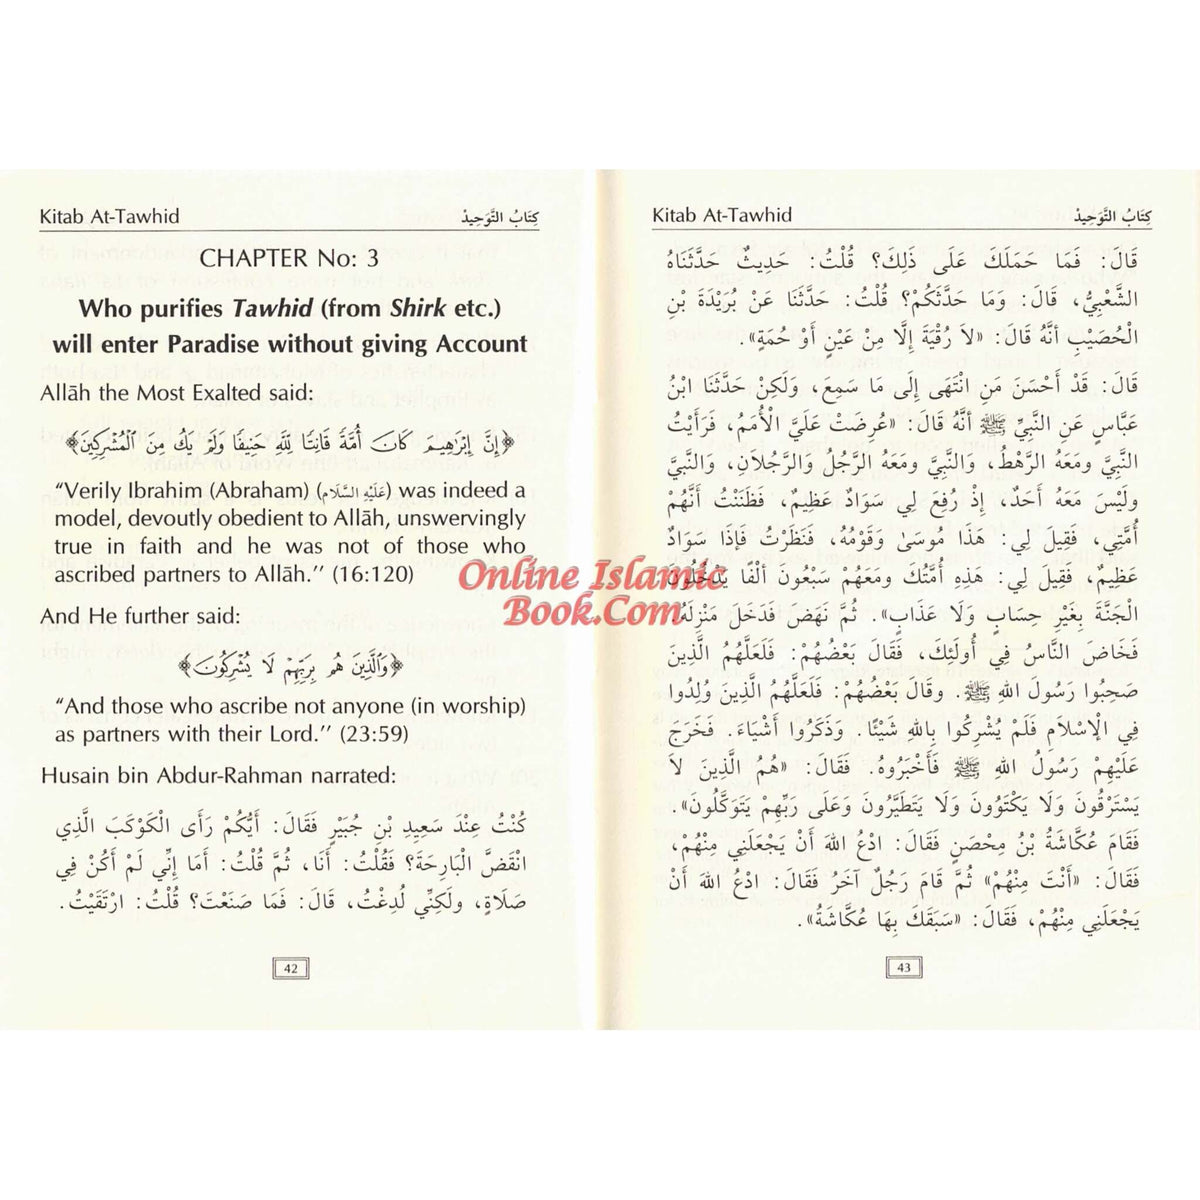 Kitab At-Tawhid كِتَابُ التَّوَحِيدْ
CHAPTER No: 3
Who purifies Tawhid (from Shirk etc.)
will enter Paradise without giving Account
Allāh the Most Exalted said:
﴿إِنَّ إِبْرَاهِيمَ كَانَ أُمَّةً قَانِتًا لِلَّهِ حَنِيفًا وَلَمْ يَكُ مِنَ الْمُشْرِكِينَ﴾
“Verily Ibrahim (Abraham) (عَلَيْهِ السَّلَام) was indeed a
model, devoutly obedient to Allāh, unswervingly
true in faith and he was not of those who
ascribed partners to Allāh.’’ (16:120)
And He further said:
﴿وَالَّذِينَ هُم بِرَبِّهِمْ لَا يُشْرِكُونَ﴾
“And those who ascribe not anyone (in worship)
as partners with their Lord.’’ (23:59)
Husain bin Abdur-Rahman narrated:
كُنْتُ عِنْدَ سَعِيدِ بْنِ جُبَيْرٍ فَقَالَ: أَيُّكُمْ رَأَى الْكَوْكَبَ الَّذِي
انْقَضَّ الْبَارِحَةَ؟ فَقُلْتُ: أَنَا، ثُمَّ قُلْتُ: أَمَا إِنِّي لَمْ أَكُنْ فِي
صَلَاةٍ، وَلَكِنِّي لُدِغْتُ، قَالَ: فَمَا صَنَعْتَ؟ قُلْتُ: ارْتَقَيْتُ.
42
Kitab At-Tawhid كِتَابُ التَّوَحِيدْ
قَالَ: فَمَا حَمَلَكَ عَلَى ذَلِكَ؟ قُلْتُ: حَدِيثٌ حَدَّثَنَاهُ
الشَّعْبِيُّ، قَالَ: وَمَا حَدَّثَكُمْ؟ قُلْتُ: حَدَّثَنَا عَنْ بُرَيْدَةَ بْنِ
الْحُصَيْبِ أنَّهُ قَالَ: «لَا رُقْيَةَ إِلَّا مِنْ عَيْنٍ أَوْ حُمَةٍ».
قَالَ: قَدْ أَحْسَنَ مَنِ انْتَهَى إِلَى مَا سَمِعَ، وَلَكِنْ حَدَّثَنَا ابْنُ
عَبَّاسٍ عَنِ النَّبِيِّ ﷺ أنَّهُ قَالَ: «عُرِضَتْ عَلَيَّ الْأُمَمُ، فَرَأَيْتُ
النَّبِيَّ ومَعَهُ الرَّهْطُ، وَالنَّبِيَّ ومَعَهُ الرَّجُلُ وَالرَّجُلَانِ، وَالنَّبِيَّ
وَلَيْسَ مَعَهُ أَحَدٌ، إِذْ رُفِعَ لِي سَوَادٌ عَظِيمٌ، فَظَنَنْتُ أَنَّهُمْ
أُمَّتِي، فَقِيلَ لِي: هَذَا مُوسَى وَقَوْمُهُ، فَنَظَرْتُ فَإِذَا سَوَادٌ
عَظِيمٌ، فَقِيلَ لِي: هَذِهِ أُمَّتُكَ ومَعَهُمْ سَبْعُونَ أَلْفًا يَدْخُلُونَ
الْجَنَّةَ بِغَيْرِ حِسَابٍ وَلَا عَذَابٍ». ثُمَّ نَهَضَ فَدَخَلَ مَنْزِلَهُ،
فَخَاضَ النَّاسُ فِي أُولَئِكَ، فَقَالَ بَعْضُهُمْ: فَلَعَلَّهُمُ الَّذِينَ
صَحِبُوا رَسُولَ اللهِ ﷺ. وقَالَ بَعْضُهُمْ: فَلَعَلَّهُمُ الَّذِينَ وُلِدُوا
فِي الْإِسْلَامِ فَلَمْ يُشْرِكُوا بِاللهِ شَيْئًا. وَذَكَرُوا أَشْيَاءَ. فَخَرَجَ
عَلَيْهِمْ رَسُولُ اللهِ ﷺ فَأَخْبَرُوهُ. فَقَالَ: «هُمُ الَّذِينَ لَا
يَسْتَرْقُونَ وَلَا يَكْتَوُونَ وَلَا يَتَطَيَّرُونَ وَعَلَى رَبِّهِمْ يَتَوَكَّلُونَ».
فَقَامَ عُكَّاشَةُ بْنُ مِحْصَنٍ فَقَالَ: ادْعُ اللهَ أَنْ يَجْعَلَنِي مِنْهُمْ،
فَقَالَ: «أَنْتَ مِنْهُمْ» ثُمَّ قَامَ رَجُلٌ آخَرُ فَقَالَ: ادْعُ اللهَ أَنْ
يَجْعَلَنِي مِنْهُمْ، فَقَالَ: «سَبَقَكَ بِهَا عُكَّاشَةُ».
43
Online Islamic
Book.Com